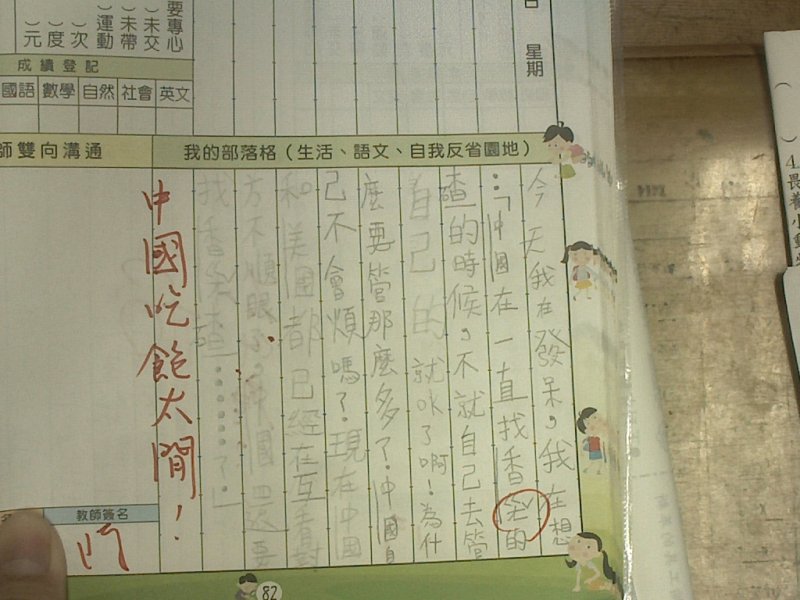 要專心
）未交
）未帶
）運動
）次
）度
）元
星期
成績登記
國語
數學
自然
社會
英文
師雙向溝通
我的部落格（生活、語文、自我反省園地）
今天我在發呆，我在想
…「中國在一直找香的
碴的時候，不就自己去管
自己的就OK了啊！為什
麼要管那麼多了。中國自
己不會煩嗎？現在中國
和美國都已經在互看對
方不順眼了，中國四處要
找香港碴……了」
中國吃飽太閒！
教師簽名
82
4